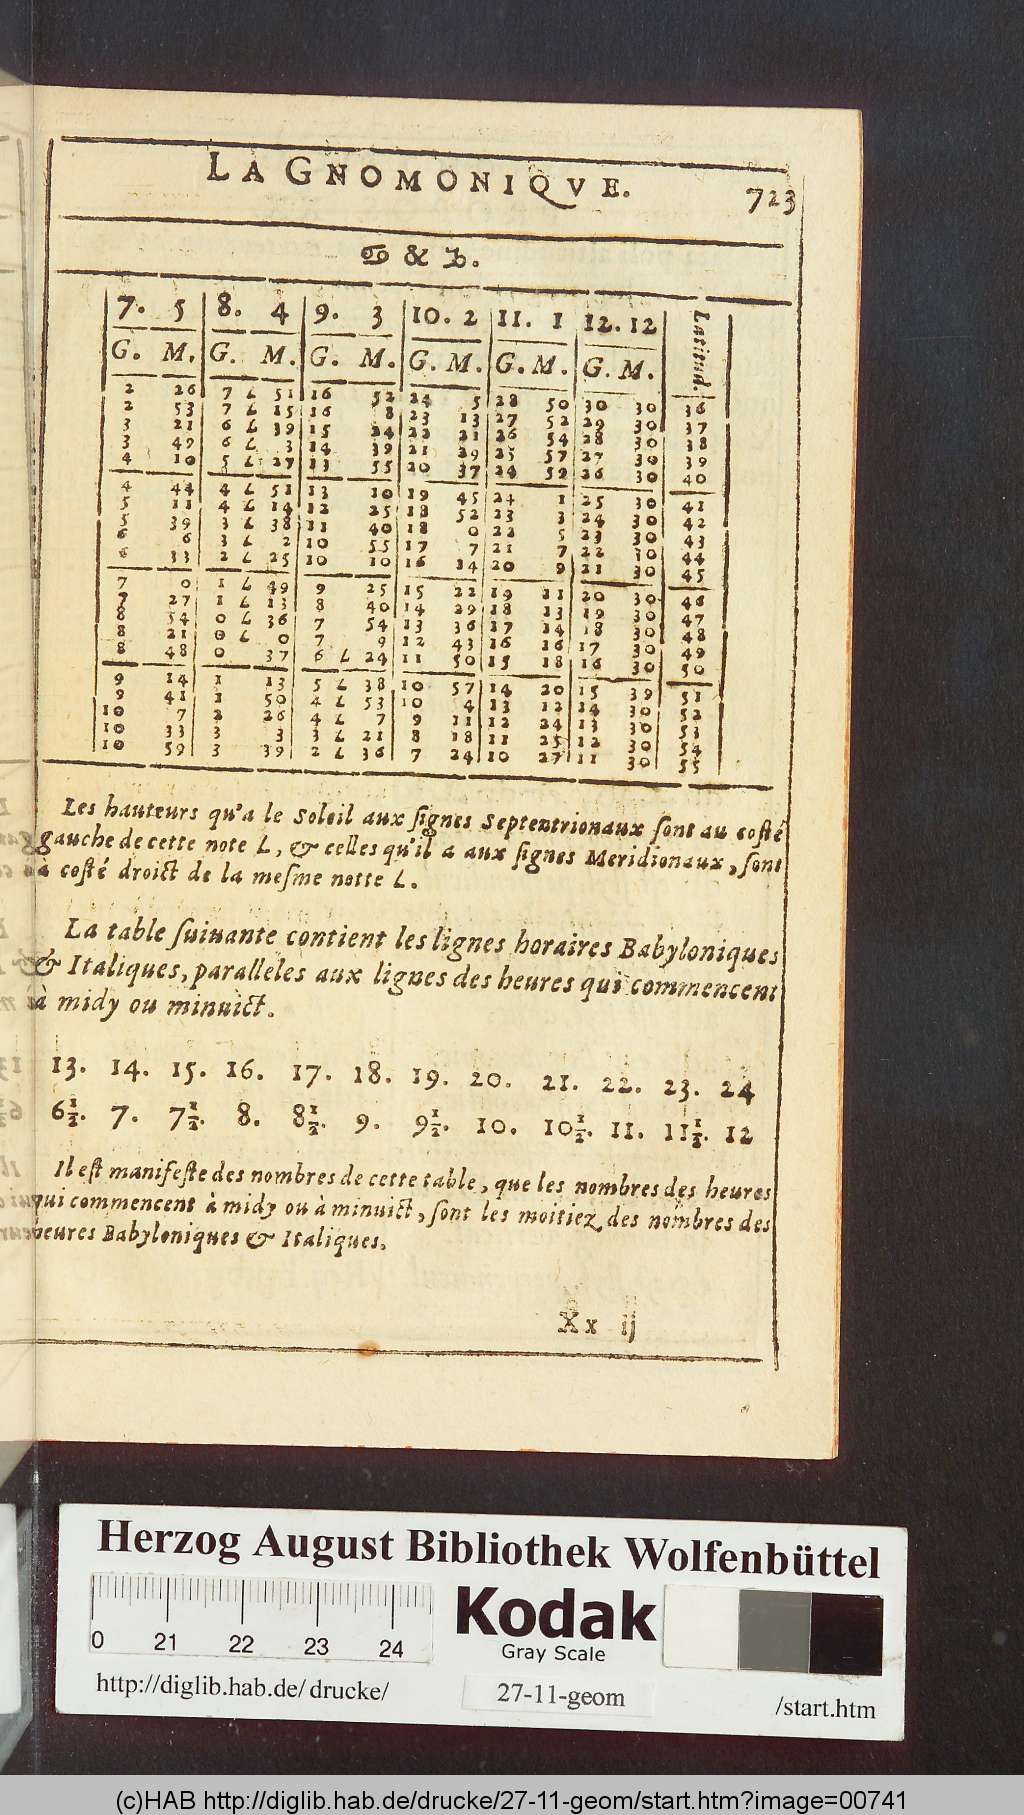 LA GNOMONIQVE. 723
♋ & ♑.
7. 5 8. 4 9. 3 10. 2 11. 1 12. 12 Latitud.
G. M. G. M. G. M. G. M. G. M. G. M.
2 26 7 L 51 16 52 24 5 28 50 30 30 36
2 53 7 L 15 16 8 23 13 27 52 29 30 37
3 21 6 L 39 15 24 22 21 26 54 28 30 38
3 49 6 L 3 14 39 21 29 25 57 27 30 39
4 10 5 L 27 13 55 20 37 24 59 26 30 40
4 44 4 L 51 13 10 19 45 24 1 25 30 41
5 11 4 L 14 12 25 18 52 23 3 24 30 42
5 39 3 L 38 11 40 18 0 22 5 23 30 43
6 6 3 L 2 10 55 17 7 21 7 22 30 44
6 33 2 L 25 10 10 16 14 20 9 21 30 45
7 0 1 L 49 9 25 15 22 19 11 20 30 46
7 27 1 L 13 8 40 14 29 18 13 19 30 47
8 54 0 L 36 7 54 13 36 17 14 18 30 48
8 21 0 L 0 7 9 12 43 16 16 17 30 49
8 48 0 37 6 L 24 11 50 15 18 16 30 50
9 14 1 13 5 L 38 10 57 14 20 15 39 51
9 41 1 50 4 L 53 10 4 13 12 14 30 52
10 7 2 26 4 L 7 9 11 12 24 13 30 53
10 33 3 3 3 L 21 8 18 11 25 12 30 54
10 59 3 39 2 L 36 7 24 10 27 11 30 55
Les hauteurs qu'a le Soleil aux ſignes Septentrionaux ſont au coſté
gauche de cette note L, & celles qu'il a aux ſignes Meridionaux, ſont
à coſté droict de la meſme notte L.
La table ſuiuante contient les lignes horaires Babyloniques
& Italiques, paralleles aux lignes des heures qui commencent
à midy ou minuict.
13. 14. 15. 16. 17. 18. 19. 20. 21. 22. 23. 24
6½. 7. 7½. 8. 8½. 9. 9½. 10. 10½. 11. 11½. 12
Il eſt manifeſte des nombres de cette table, que les nombres des heures
qui commencent à midy ou à minuict, ſont les moitiez des nombres des
heures Babyloniques & Italiques.
Xx ij
Herzog August Bibliothek Wolfenbüttel
0 21 22 23 24
Kodak
Gray Scale
http://diglib.hab.de/drucke/ 27-11-geom /start.htm
(c)HAB http://diglib.hab.de/drucke/27-11-geom/start.htm?image=00741